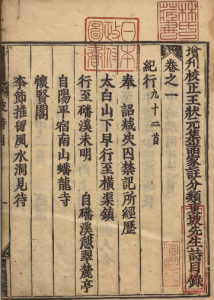 增刊校正王狀元集諸家註分類東坡先生詩目錄
卷之一
紀行九十二首
奉詔減決囚禁記所經歷
太白山下早行至橫渠鎮
行至磻溪未明
自磻溪憩翠麓亭
自陽平宿南山蟠龍寺
懷賢閣
李節推留風水洞見待
日本